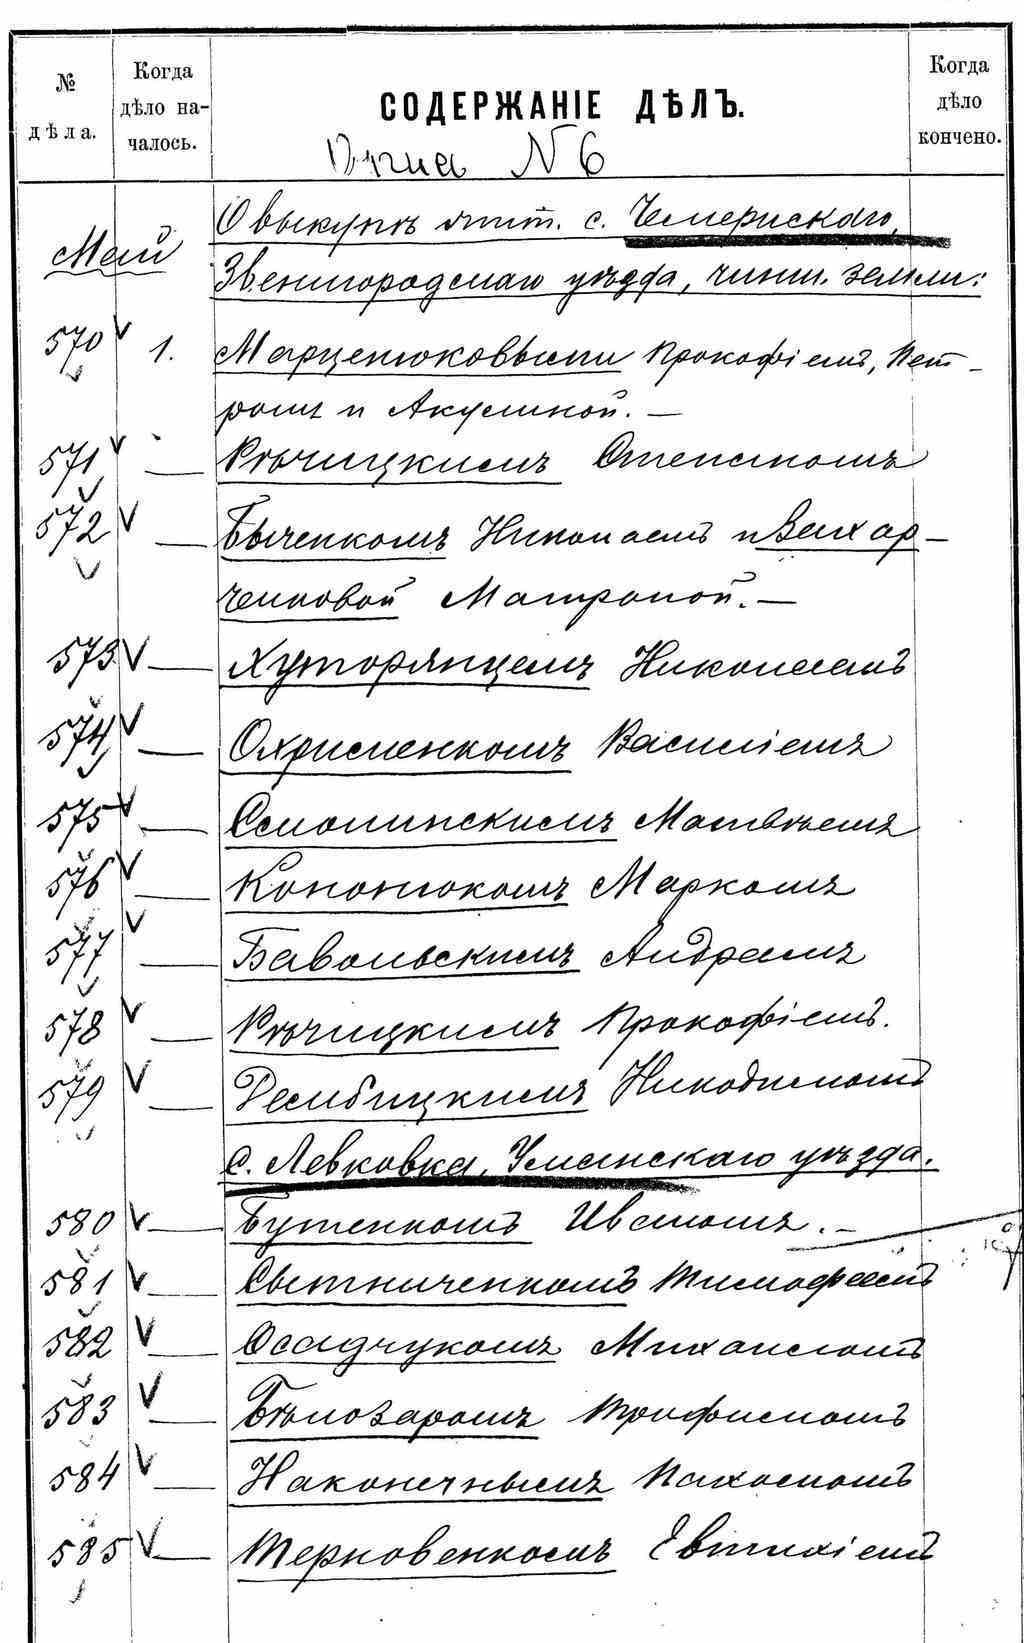 № дѣла.
Когда дѣло на-
чалось.
СОДЕРЖАНІЕ ДѢЛЪ.
Когда дѣло кончено.
N 6
О выкупѣ жит. с. Чемерискаго,
Май
Звенигородскаго уѣзда, чинш. земли:
570 1. Марценюковыми Прокофіемъ, Пет-
ромъ и Акулиной. —
571 — Рѣчицкимъ Степаномъ
572 — Быченкомъ Николаемъ и Захар-
ченковой Матроной. —
573 — Хуторянцемъ Николаемъ
574 — Охрименкомъ Василіемъ
575 — Смолинскимъ Матвѣемъ
576 — Кононюкомъ Маркомъ
577 — Бавольскимъ Андреемъ
578 — Рѣчицкимъ Прокофіемъ.
579 — Дембицкимъ Никодимомъ
с. Левковка, Уманскаго уѣзда.
580 — Бутенкомъ Иваномъ. —
581 — Сытниченкомъ Тимофеемъ
582 — Осадчукомъ Михаиломъ
583 — Бѣлозаромъ Трофимомъ
584 — Наконечнымъ Пахомомъ
585 — Терновенкомъ Евтихіемъ